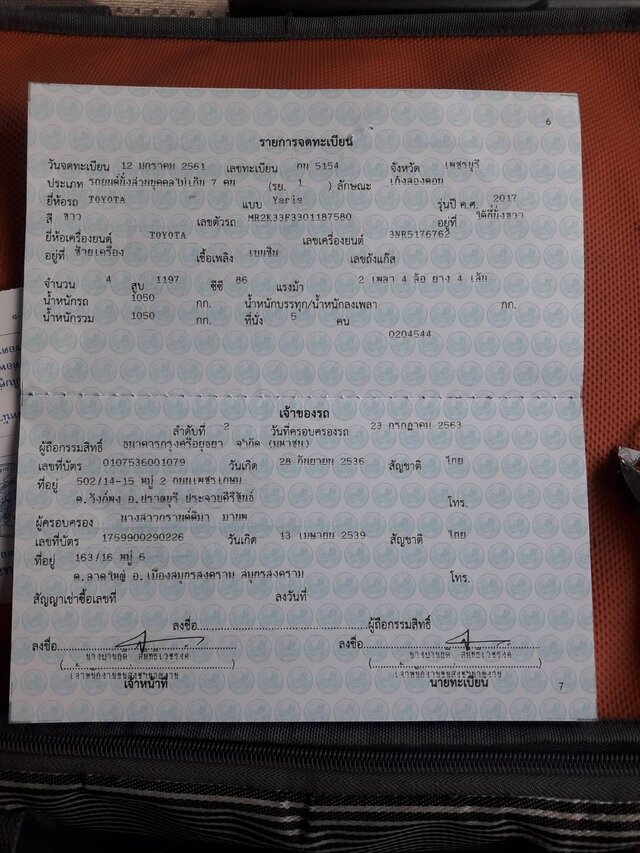 6
รายการจดทะเบียน
วันจดทะเบียน 12 มกราคม 2561 เลขทะเบียน กน 5154 จังหวัด เพชรบุรี
ประเภท รถยนต์นั่งส่วนบุคคลไม่เกิน 7 คน (รย. 1 ) ลักษณะ เก๋งสองตอน
ยี่ห้อรถ TOYOTA แบบ Yaris รุ่นปี ค.ศ. 2017
สี ขาว เลขตัวรถ MR2K33F3301187580 อยู่ที่ ใต้ที่นั่งขวา
ยี่ห้อเครื่องยนต์ TOYOTA เลขเครื่องยนต์ 3NR5176762
อยู่ที่ ซ้ายเครื่อง เชื้อเพลิง เบนซิน เลขถังแก๊ส
จำนวน 4 สูบ 1197 ซีซี 86 แรงม้า 2 เพลา 4 ล้อ ยาง 4 เส้น
น้ำหนักรถ 1050 กก. น้ำหนักบรรทุก/น้ำหนักลงเพลา กก.
น้ำหนักรวม 1050 กก. ที่นั่ง 5 คน
0204544
เจ้าของรถ
ลำดับที่ 2 วันที่ครอบครองรถ 23 กรกฎาคม 2563
ผู้ถือกรรมสิทธิ์ ธนาคารกรุงศรีอยุธยา จำกัด (มหาชน)
เลขที่บัตร 0107536001079 วันเกิด 28 กันยายน 2536 สัญชาติ ไทย
ที่อยู่ 502/14-15 หมู่ 2 ถนนเพชรเกษม
ต.วังก์พง อ.ปราณบุรี ประจวบคีรีขันธ์ โทร.
ผู้ครอบครอง นางสาว
เลขที่บัตร 1759900290226 วันเกิด 13 เมษายน 2539 สัญชาติ ไทย
ที่อยู่ 163/16 หมู่ 6
ต.ลาดใหญ่ อ.เมืองสมุทรสงคราม สมุทรสงคราม โทร.
สัญญาเช่าซื้อเลขที่ ลงวันที่
ลงชื่อ ผู้ถือกรรมสิทธิ์
ลงชื่อ ลงชื่อ
เจ้าพนักงานขนส่งชำนาญงาน เจ้าพนักงานขนส่งชำนาญงาน
เจ้าหน้าที่ นายทะเบียน
7